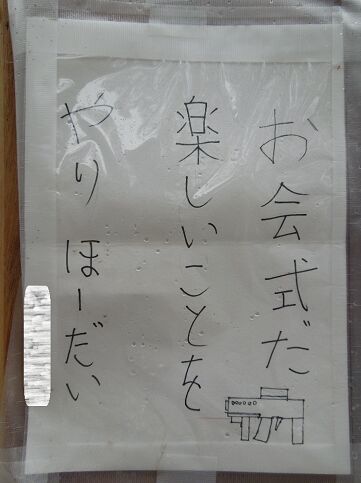 お会式だ
楽しいことを
やりほーだい